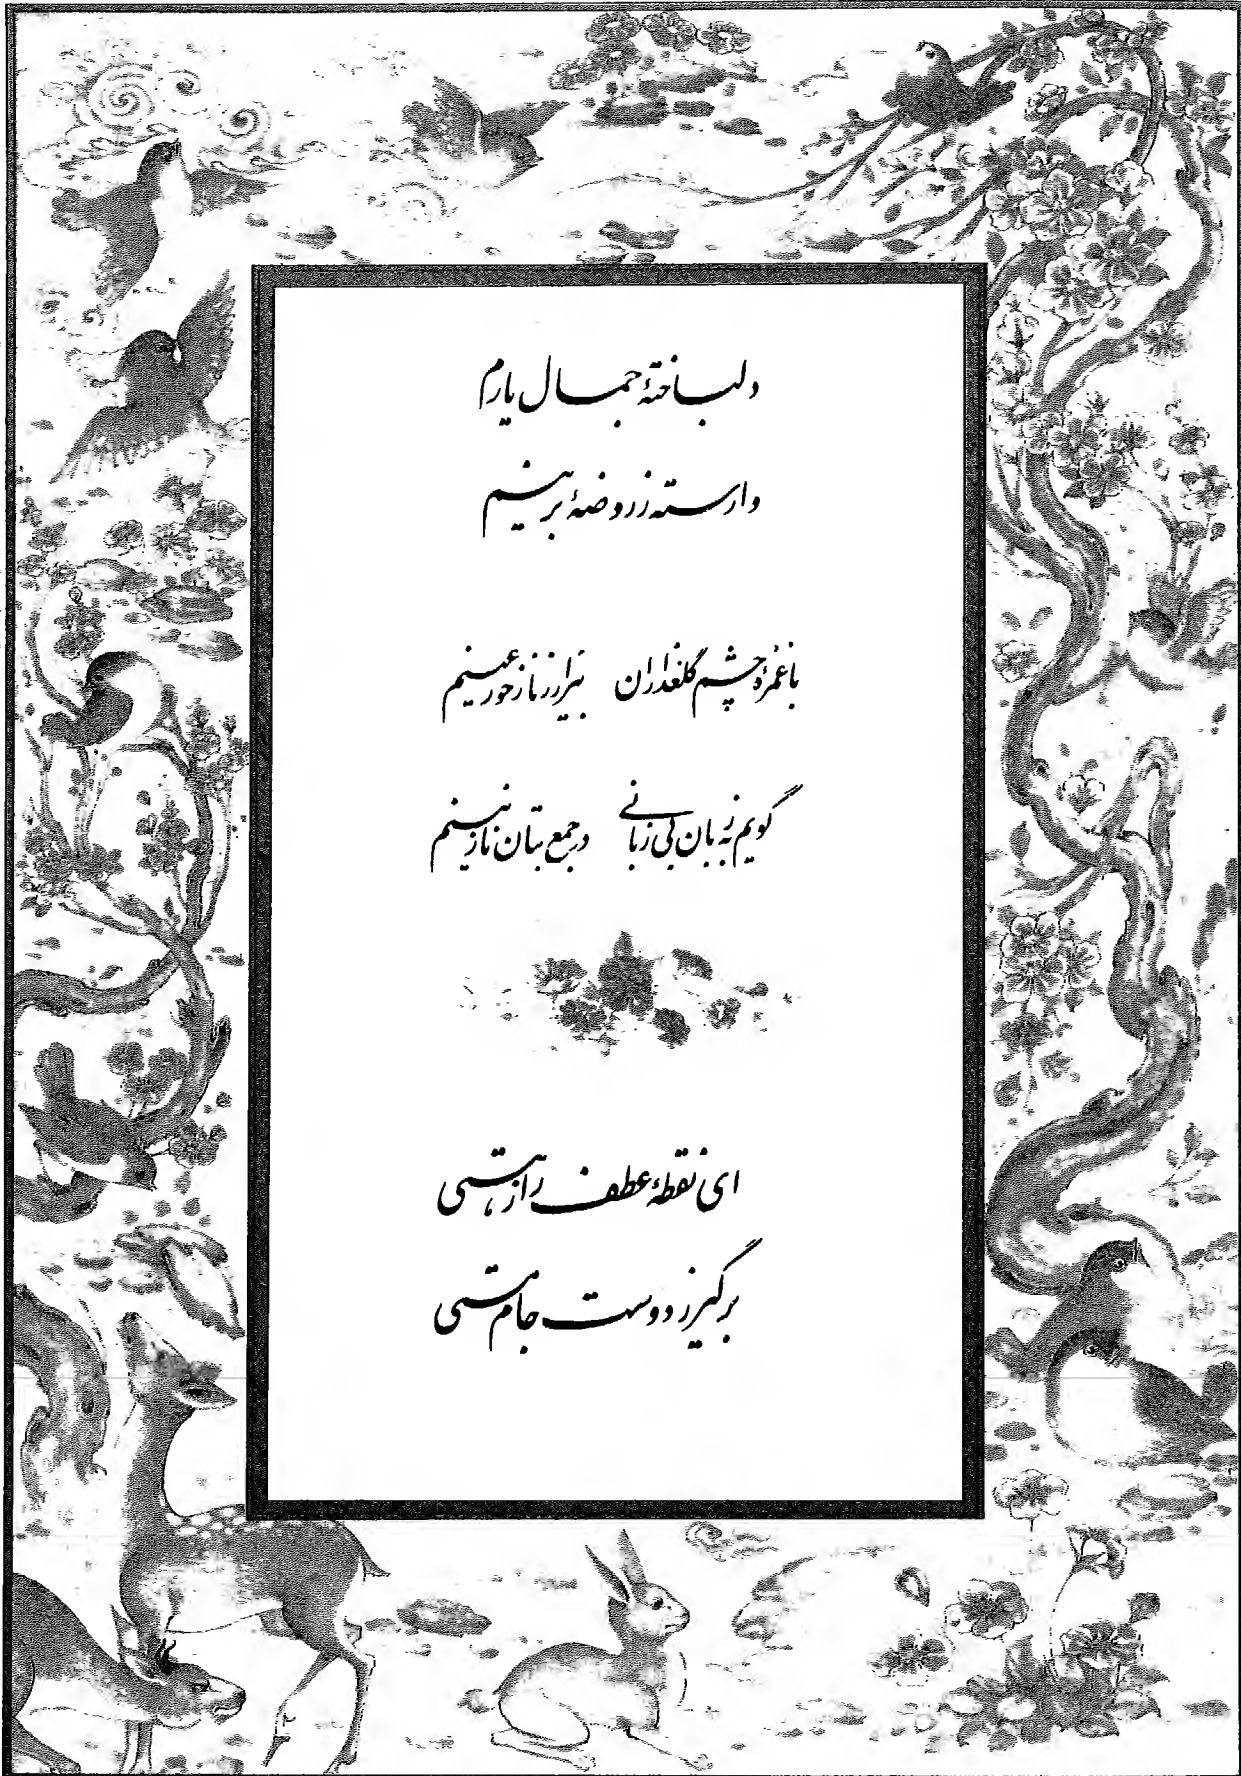 دلباختهٔ جمال یارم
وارسته ز روضهٔ برینم
با غمزهٔ چشم گلعذاران بیزار ز ناز حور عینم
گویم به زبان بی‌زبانی در جمع بتان نازنینم
ای نقطهٔ عطف راز هستی
برگیر ز دوست جام مستی